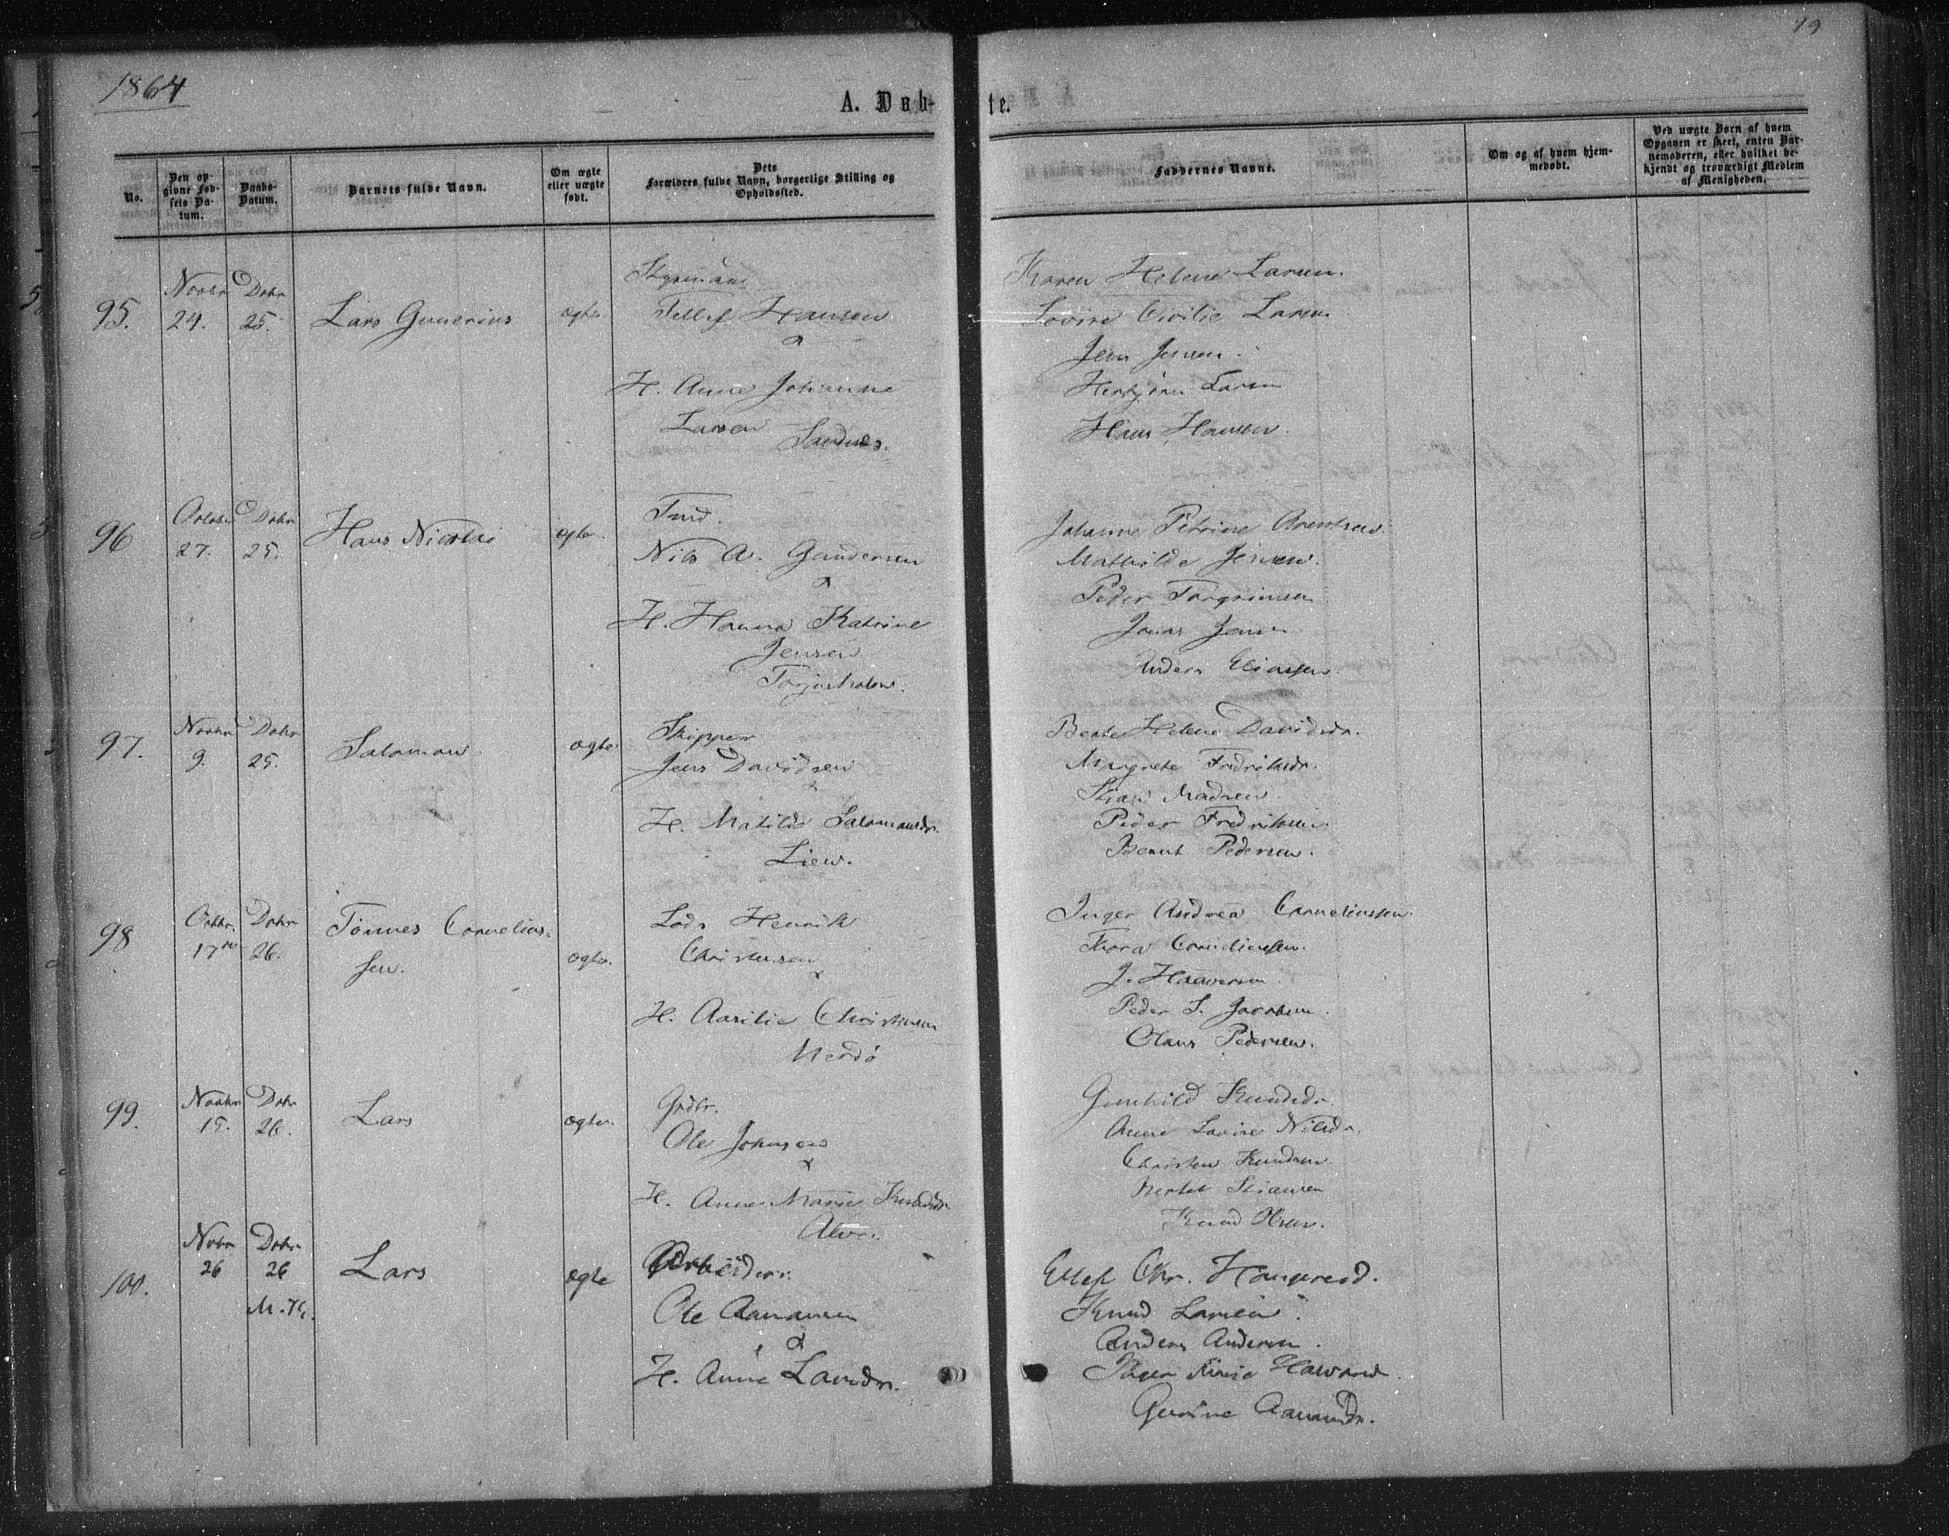 1864
19
A. Døb-
te.
No.
Den op-
givne Fød-
sels Da-
tum.
Daabs-
Datum.
Barnets fulde Navn.
Om ægte
eller uægte
født.
Dets
Forældres fulde Navn, borgerlige Stilling og
Opholdssted.
Faddernes Navne.
Om og af hvem hjem-
medøbt.
Ved uægte Børn af hvem
Opgaven er skeet, enten Bar-
nemoderen, eller hvilket be-
kjendt og troværdigt Medlem
af Menigheden.
95.
Novbr
24.
Dcbr
25.
Lars Gunerius
ægte.
Styrmand
Tellef Hansen
H. Anne Johanne
Larsen
Sandnes.
Karen Helene Larsen.
Lovise Cicilie Larsen
Jens Jensen.
Larsen
Hans Hansen.
96
27.
Dcbr
25.
Hans Nicolai
ægte.
Tmd.
Nils A. Gundersen
H. Hanna Katrine
Jensen
Torjusholmen.
Johanne Petrine Arentsen.
Mathilde Jensen.
Peder Torgrimsen
Jonas Jensen
Anders Eliassen.
97.
Novbr
9.
Dcbr
25.
Salamon
ægte
Skipper
Jens Davidsen
H. Matilde Salamonsdr.
Liew.
Bente Helene Davidsdr.
Margrete Fredriksdr.
Stian Madsen
Peder Fredriksen.
Berent Pedersen.
98
Octbr.
17de
Dcbr
26.
Tönnes Cornelius-
sen.
ægte.
Lods Henrik
Christensen
H. Aasilie Christensen
Merdö
Inger Andrea Corneliussen.
Thora Corneliussen.
J. Haaversen
Peder S. Jacobsen.
Olaus Pedersen.
99.
Novbr
15.
Dcbr
26.
Lars
ægte.
Grdbr.
Ole Johnsen
H. Anne Marie Knudsdr.
Alve.
Gunhild Knudsdr.
Anne Lovise Nilsdr.
Christen Knudsen
Stiansen
Knud Olsen.
100.
Nvbr
26
Dcbr
26
Lars
ægte
Arbeider.
Ole Aanonsen
H. Anne Larsdr.
Ellef Chr. Haugerød.
Knud Larsen.
Anders Andersen.
Inger
Gurine Aanonsdr.